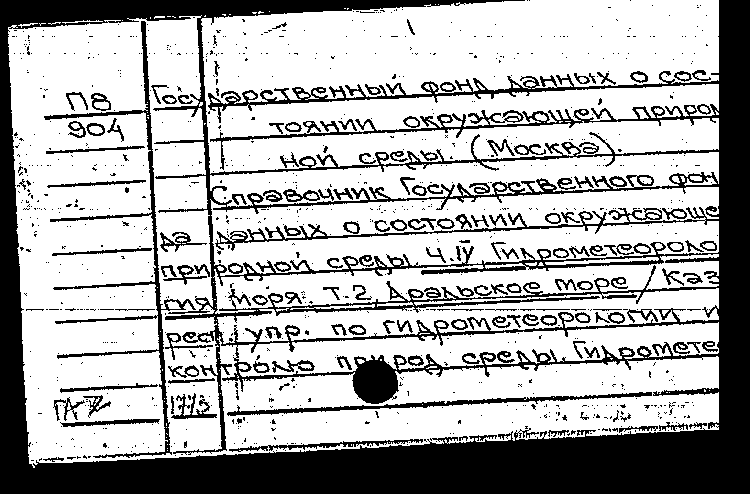 П8
904
Государственный фонд данных о сос-
тоянии окружающей природ
ной среды. (Москва).
Справочник Государственного фон
да данных о состоянии окружающе
природной среды. Ч.IV, Гидрометеороло
гия моря. Т.2, Аральское море / Каз
респ. упр. по гидрометеорологии и
контролю природ. среды. Гидромете